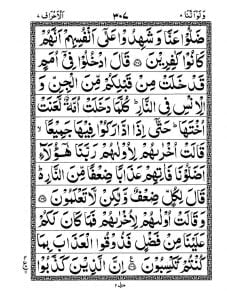 وَلَوۡاَنَّنَا ٣٠٧ اَلۡاَعۡرَاف
ضَلُّوۡا عَنَّا وَشَهِدُوۡا عَلٰٓى اَنۡفُسِهِمۡ اَنَّهُمۡ
كَانُوۡا كٰفِرِيۡنَ ۞ قَالَ ادۡخُلُوۡا فِىۡۤ اُمَمٍ
قَدۡ خَلَتۡ مِنۡ قَبۡلِكُمۡ مِّنَ الۡجِنِّ وَ
الۡاِنۡسِ فِى النَّارِ ؕ كُلَّمَا دَخَلَتۡ اُمَّةٌ لَّعَنَتۡ
اُخۡتَهَا ؕ حَتّٰۤى اِذَا ادَّارَكُوۡا فِيۡهَا جَمِيۡعًا ۙ
قَالَتۡ اُخۡرٰٮهُمۡ لِاُوۡلٰٮهُمۡ رَبَّنَا هٰٓؤُلَۤاءِ
اَضَلُّوۡنَا فَاٰتِهِمۡ عَذَابًا ضِعۡفًا مِّنَ النَّارِ ؕ
قَالَ لِكُلٍّ ضِعۡفٌ وَّلٰكِنۡ لَّا تَعۡلَمُوۡنَ ۞
وَقَالَتۡ اُوۡلٰٮهُمۡ لِاُخۡرٰٮهُمۡ فَمَا كَانَ لَكُمۡ
عَلَيۡنَا مِنۡ فَضۡلٍ فَذُوۡقُوا الۡعَذَابَ بِمَا
كُنۡتُمۡ تَكۡسِبُوۡنَ ۞ اِنَّ الَّذِيۡنَ كَذَّبُوۡا